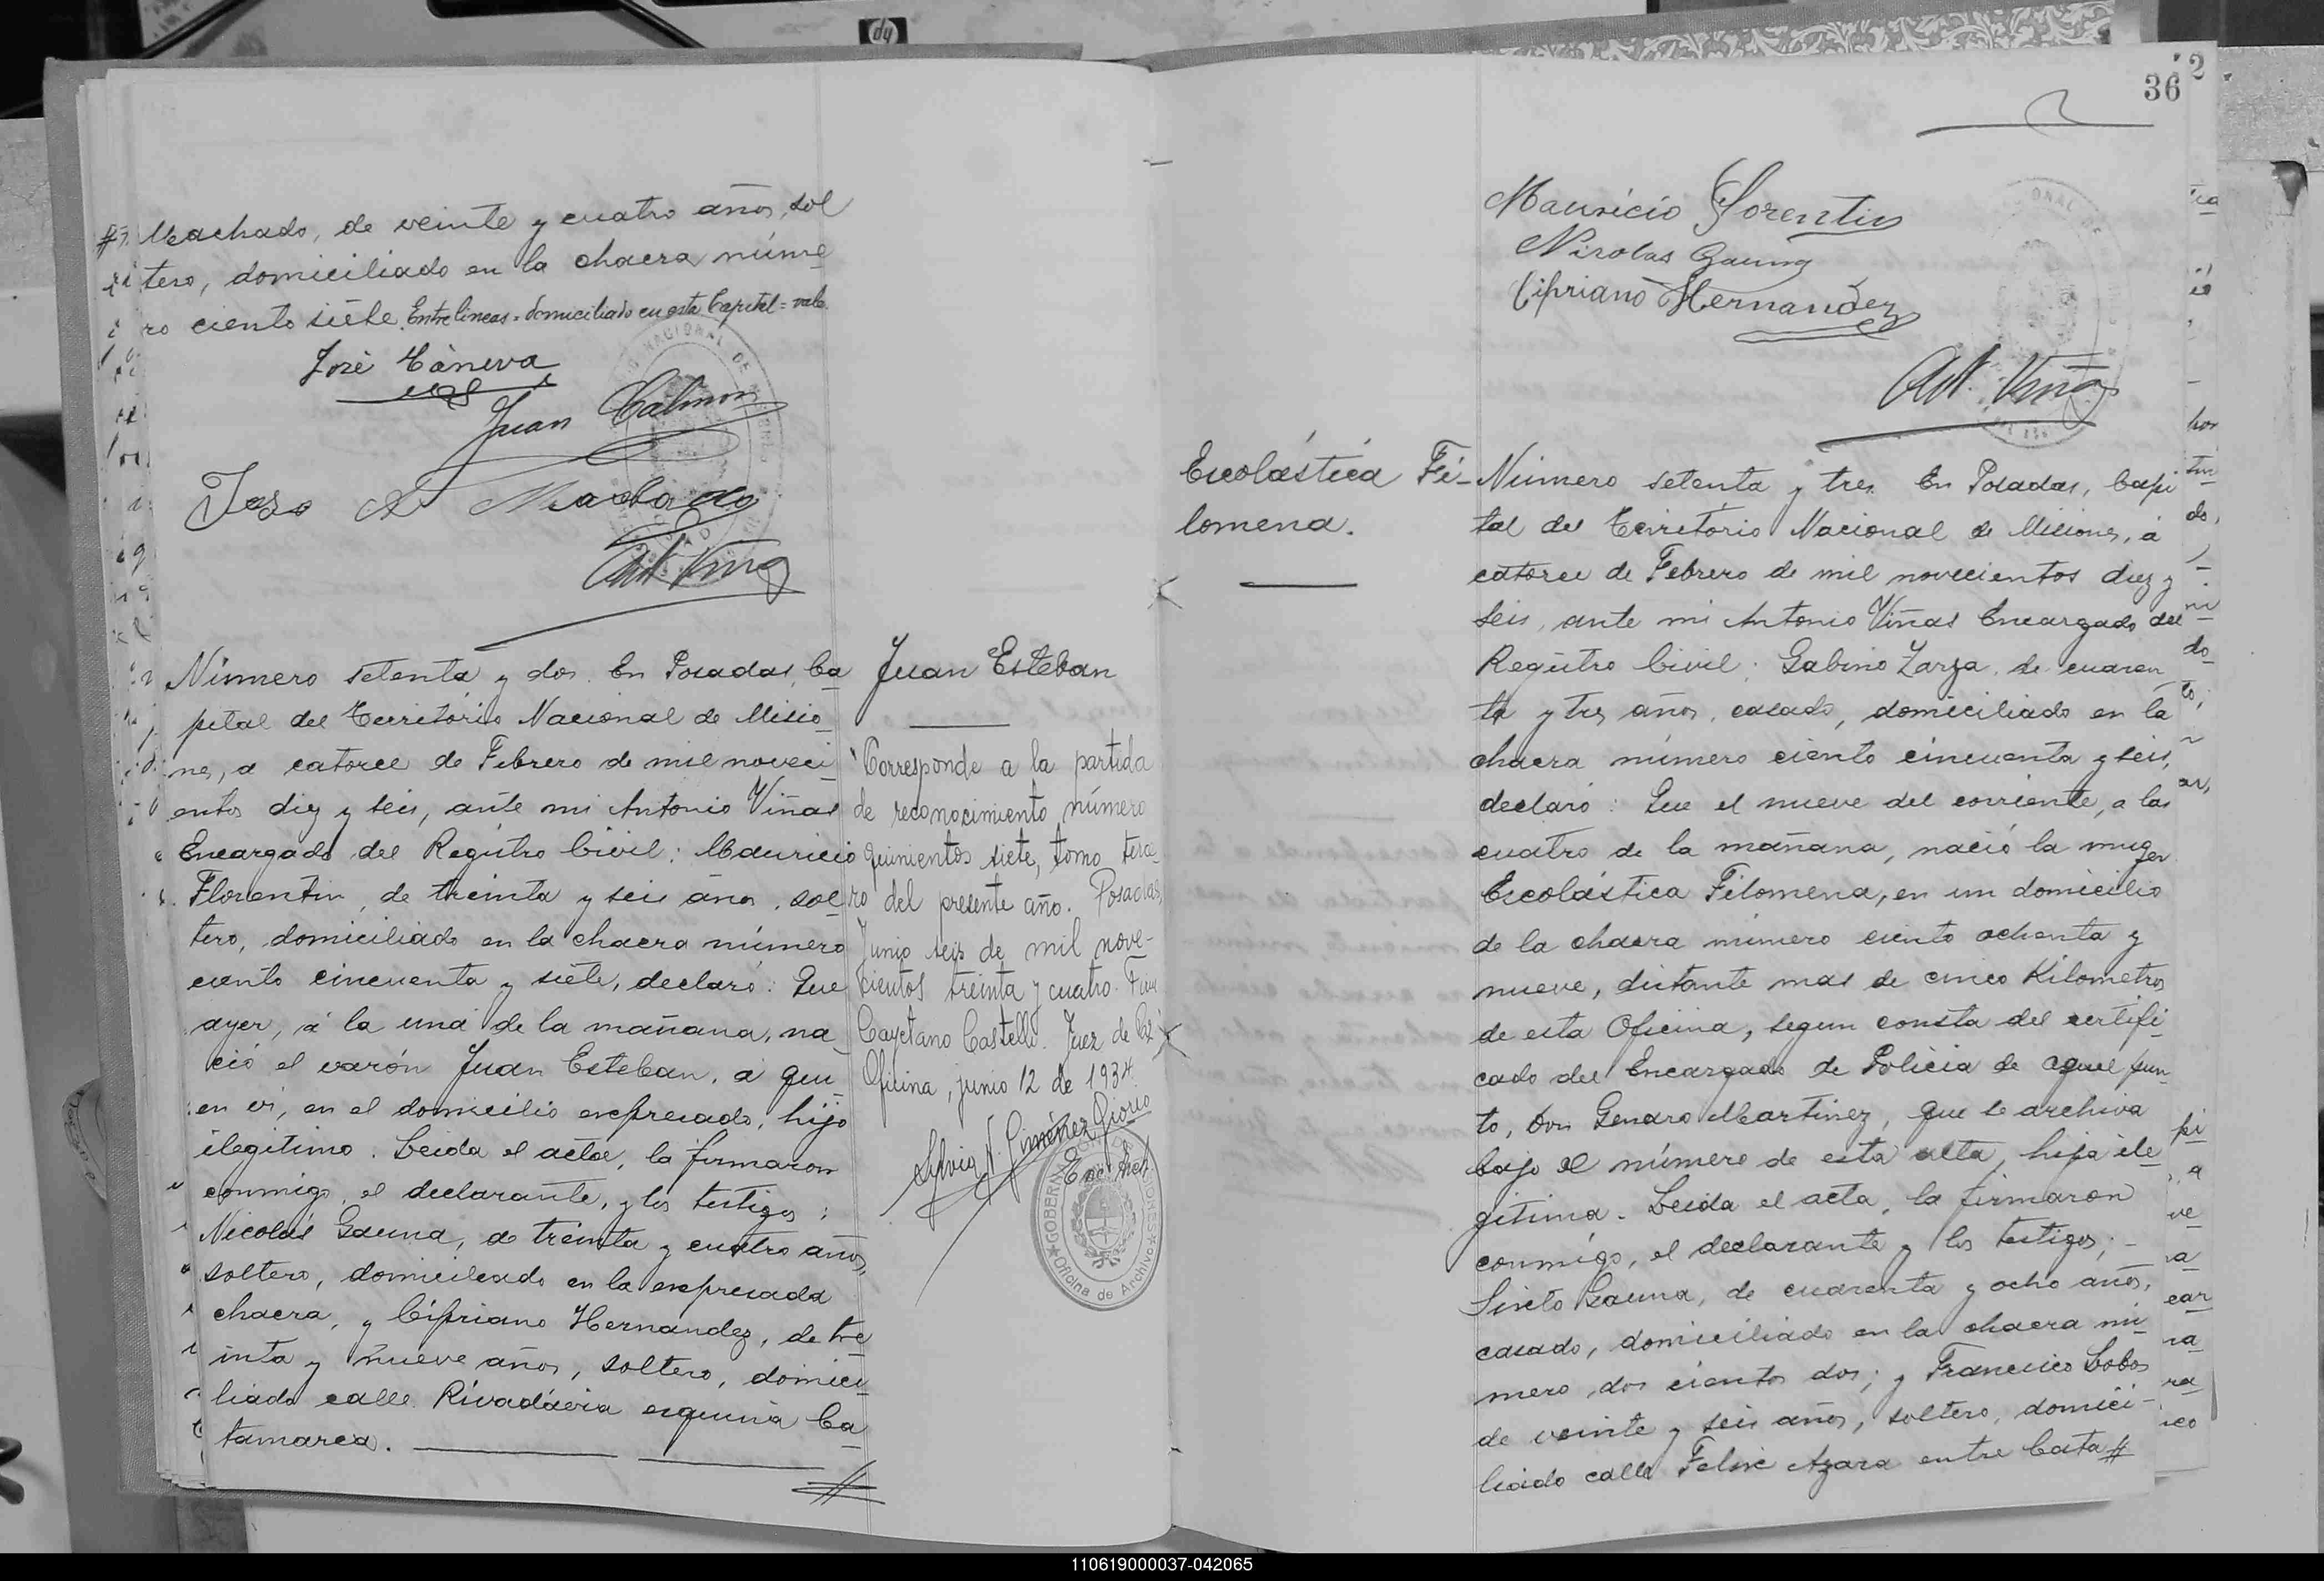 Machado, de veinte y cuatro años, sol
tero, domiciliado en la chacra núme
ro ciento siete. Entre lineas = domiciliado en esta Capital = vale.
José Cáneva
Juan
Machado
Ant. Viña
Número setenta y dos. En Posadas, Ca
pital del Territorio Nacional de Misio
nes, a catorce de Febrero de mil noveci
entos diez y seis, ante mi Antonio Viñas
Encargado del Registro Civil: Mauricio
Florentin, de treinta y seis años, sol
tero, domiciliado en la chacra número
ciento cincuenta y siete, declaró: Que
ayer, á la una de la mañana, na
ció el varón Juan Esteban, a qui
en ví, en el domicilio expresado, hijo
ilegitimo. Leida el acta, la firmaron
conmigo, el declarante, y los testigos:
Nicolás Gauna, de treinta y cuatro años,
soltero, domiciliado en la expresada
chacra, y Cipriano Hernandez, de tre
inta y nueve años, soltero, domici
liado calle Rivadavia esquina Ca
tamarca.
#
Juan Esteban
Corresponde a la partida
de reconocimiento número
quinientos siete, tomo terce-
ro del presente año. Posadas,
Junio seis de mil nove-
cientos treinta y cuatro. Firm
Cayetano Castelli. Juez de Paz
Oficina, junio 12 de 1934.
Silvia N. Giménez Giorio
Enc. Arch.
GOBERNACION DE MISIONES
Oficina de Archivo
36
2
Mauricio Florentin
Nicolas Gauna
Cipriano Hernandez
Ant. Viña
Escolástica Fi-
lomena.
Número setenta y tres. En Posadas, Capi
tal del Territorio Nacional de Misiones, á
catorce de Febrero de mil novecientos diez y
seis, ante mi Antonio Viñas Encargado del
Registro Civil: Gabino Zarza, de cuaren
ta y tres años, casado, domiciliado en la
chacra número ciento cincuenta y seis,
declaró: Que el nueve del corriente, a las
cuatro de la mañana, nació la muger
Escolástica Filomena, en un domicilio
de la chacra número ciento ochenta y
nueve, distante mas de cinco Kilometros
de esta Oficina, segun consta del certifi
cado del Encargado de Policia de aquel pun
to, Don Genaro Martinez, que se archiva
bajo el número de esta acta, hija ile
gitima. Leida el acta, la firmaron
conmigo, el declarante y los testigos;
Sixto Gauna, de cuarenta y ocho años,
casado, domiciliado en la chacra nú
mero dos cientos dos; y Francisco Lobos
de veinte y seis años, soltero, domici-
liado calle Felix Azara entre Cata#
110619000037-042065